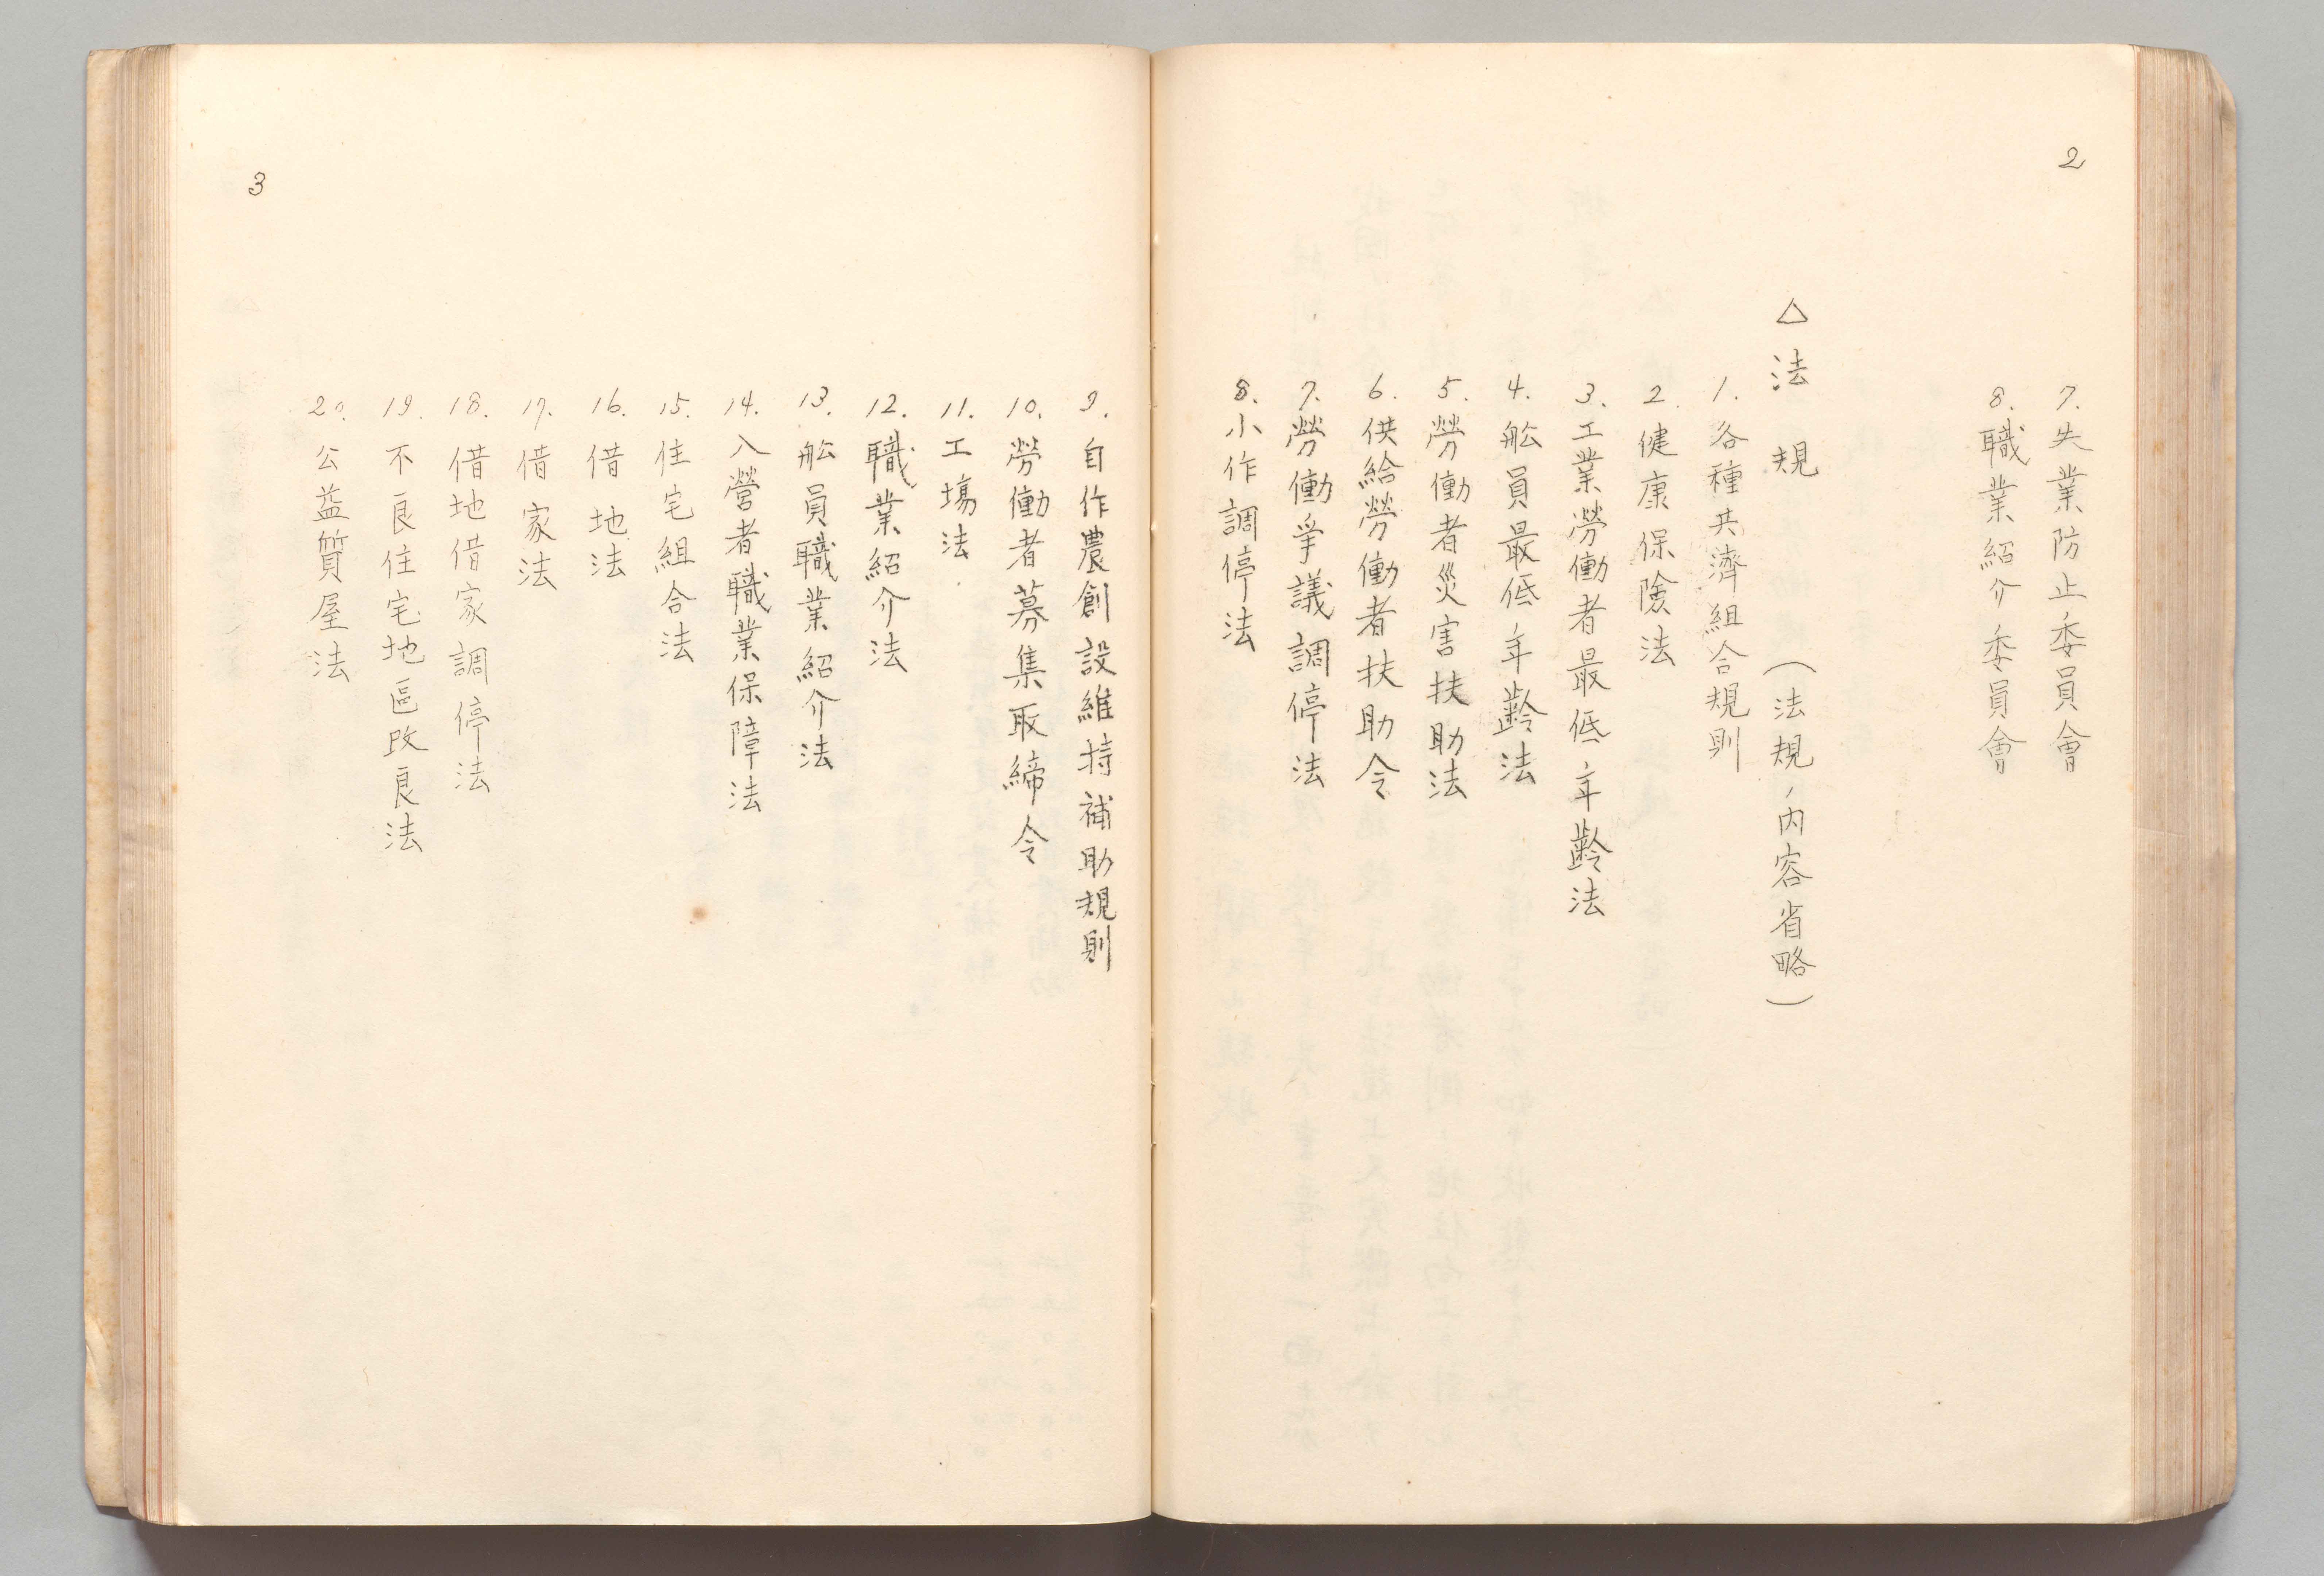 2
7. 失業防止委員會
8. 職業紹介委員會
△ 法規 (法規ノ内容省略)
1. 各種共濟組合規則
2. 健康保險法
3. 工業勞働者最低年齡法
4. 舩員最低年齡法
5. 勞働者災害扶助法
6. 供給勞働者扶助令
7. 勞働爭議調停法
8. 小作調停法
9. 自作農創設維持補助規則
10. 勞働者募集取締令
11. 工場法.
12. 職業紹介法
13. 舩員職業紹介法
14. 入營者職業保障法
15. 住宅組合法
16. 借地法
17. 借家法
18. 借地借家調停法
19. 不良住宅地區改良法
20. 公益質屋法
3